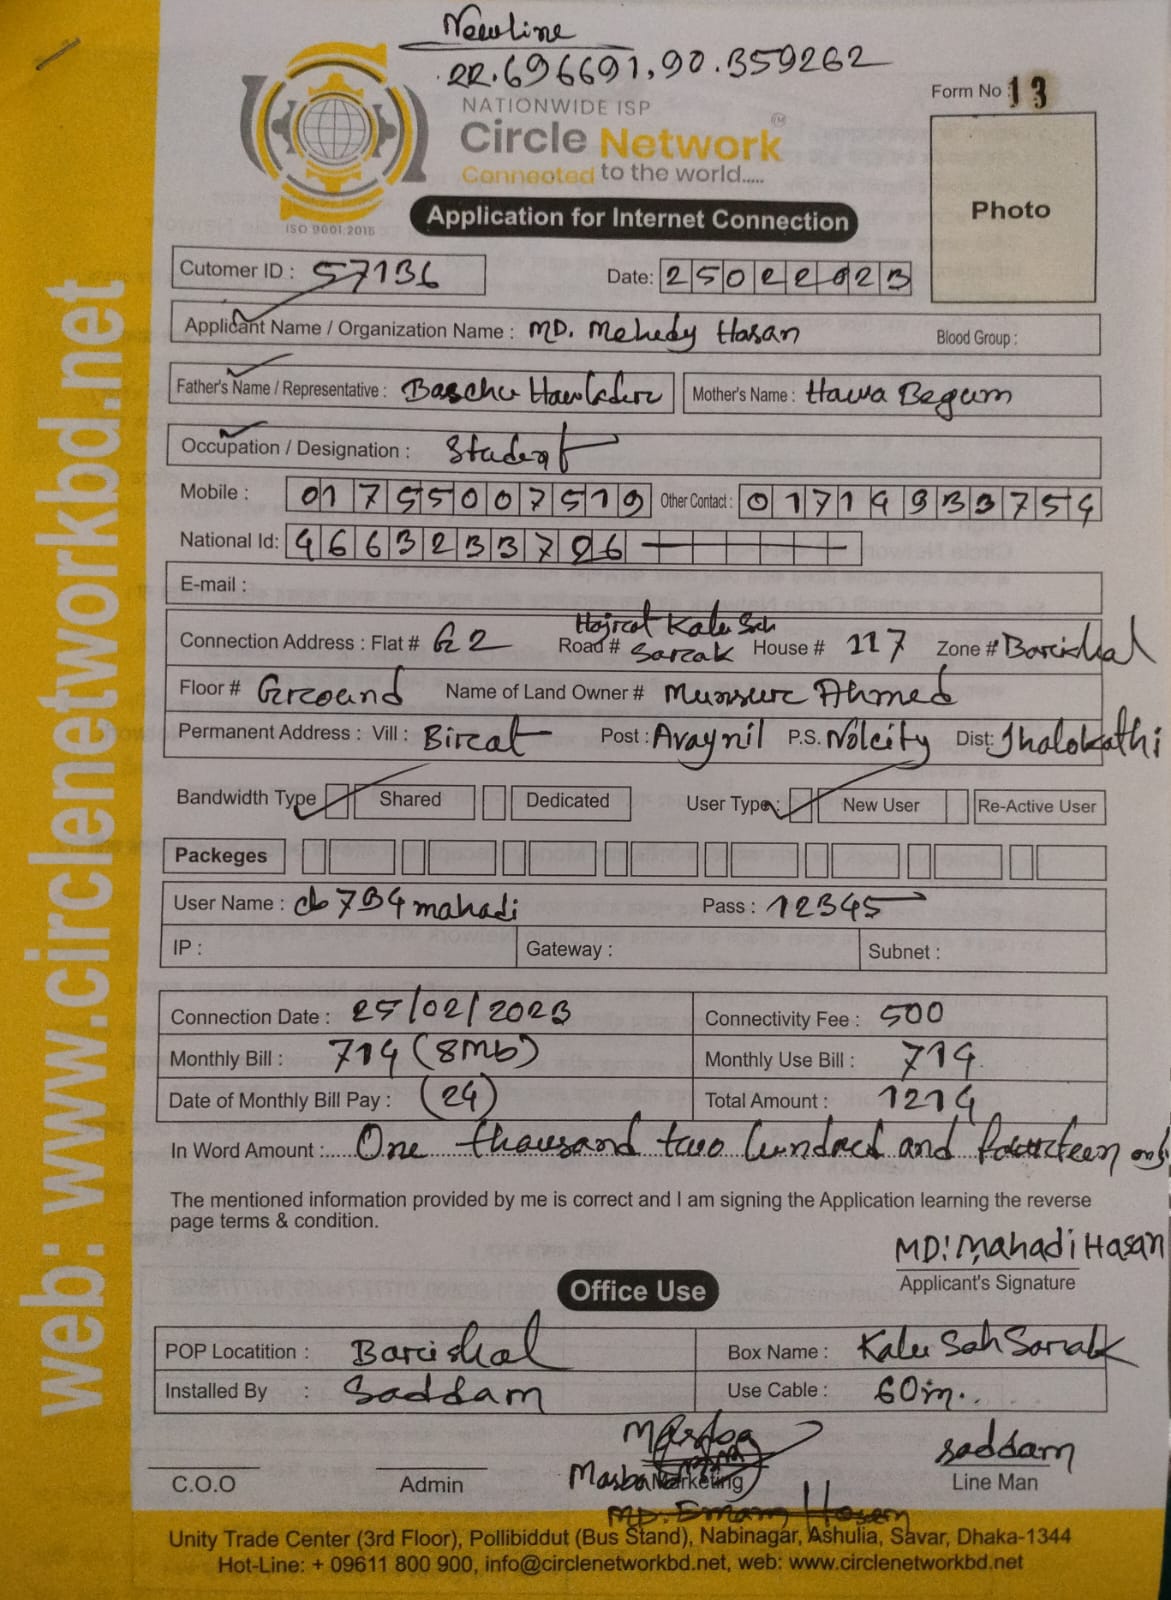 Newline
22.696691, 90.359262
NATIONWIDE ISP
Form No 13
Circle Network TM
Connected to the world.....
ISO 9001:2015
Application for Internet Connection
Photo
Cutomer ID : 57136
Date: 25022023
Applicant Name / Organization Name : MD. Mehedy Hasan Blood Group :
Father's Name / Representative : Bacchu Hawlader Mother's Name : Hawa Begum
Occupation / Designation : Student
Mobile : 01755007519 Other Contact : 01714933754
National Id: 4663233726
E-mail :
Connection Address : Flat # G2 Road # Hojrot Kalu Sah Sarak House # 117 Zone # Barishal
Floor # Ground Name of Land Owner # Munsur Ahmed
Permanent Address : Vill : Birat Post : Avaynil P.S. Nolcity Dist: Jhalokathi
Bandwidth Type Shared Dedicated User Type : New User Re-Active User
Packeges
User Name : cb734mahadi Pass : 12345
IP : Gateway : Subnet :
Connection Date : 25/02/2023 Connectivity Fee : 500
Monthly Bill : 714 (8Mb) Monthly Use Bill : 714
Date of Monthly Bill Pay : (24) Total Amount : 1214
In Word Amount :..... One thousand two hundred and fourteen only
The mentioned information provided by me is correct and I am signing the Application learning the reverse
page terms & condition.
MD: Mahadi Hasan
Applicant's Signature
Office Use
POP Locatition : Barishal Box Name : Kalu Sah Sarak
Installed By : Saddam Use Cable : 60m.
C.O.O Admin Marketing
saddam
Line Man
Unity Trade Center (3rd Floor), Pollibiddut (Bus Stand), Nabinagar, Ashulia, Savar, Dhaka-1344
Hot-Line: + 09611 800 900, info@circlenetworkbd.net, web: www.circlenetworkbd.net
web: www.circlenetworkbd.net